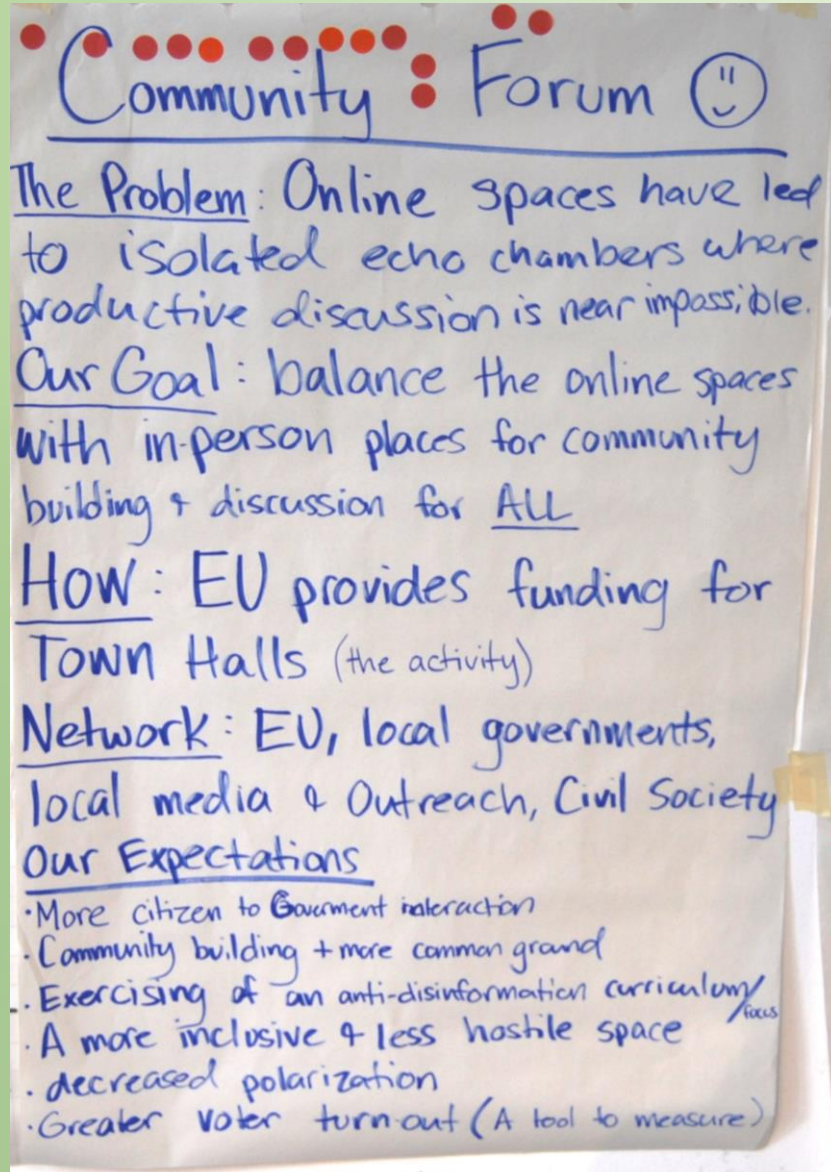 Community Forum
The Problem: Online spaces have led
to isolated echo chambers where
productive discussion is near impossible.
Our Goal: balance the online spaces
with in-person places for community
building & discussion for ALL
How: EU provides funding for
Town Halls (the activity)
Network: EU, local governments,
local media & Outreach, Civil Society
Our Expectations
·More citizen to Goverment interaction
·Community building + more common ground
·Exercising of an anti-disinformation curriculum/focus
·A more inclusive & less hostile space
·decreased polarization
·Greater voter turn-out (A tool to measure)